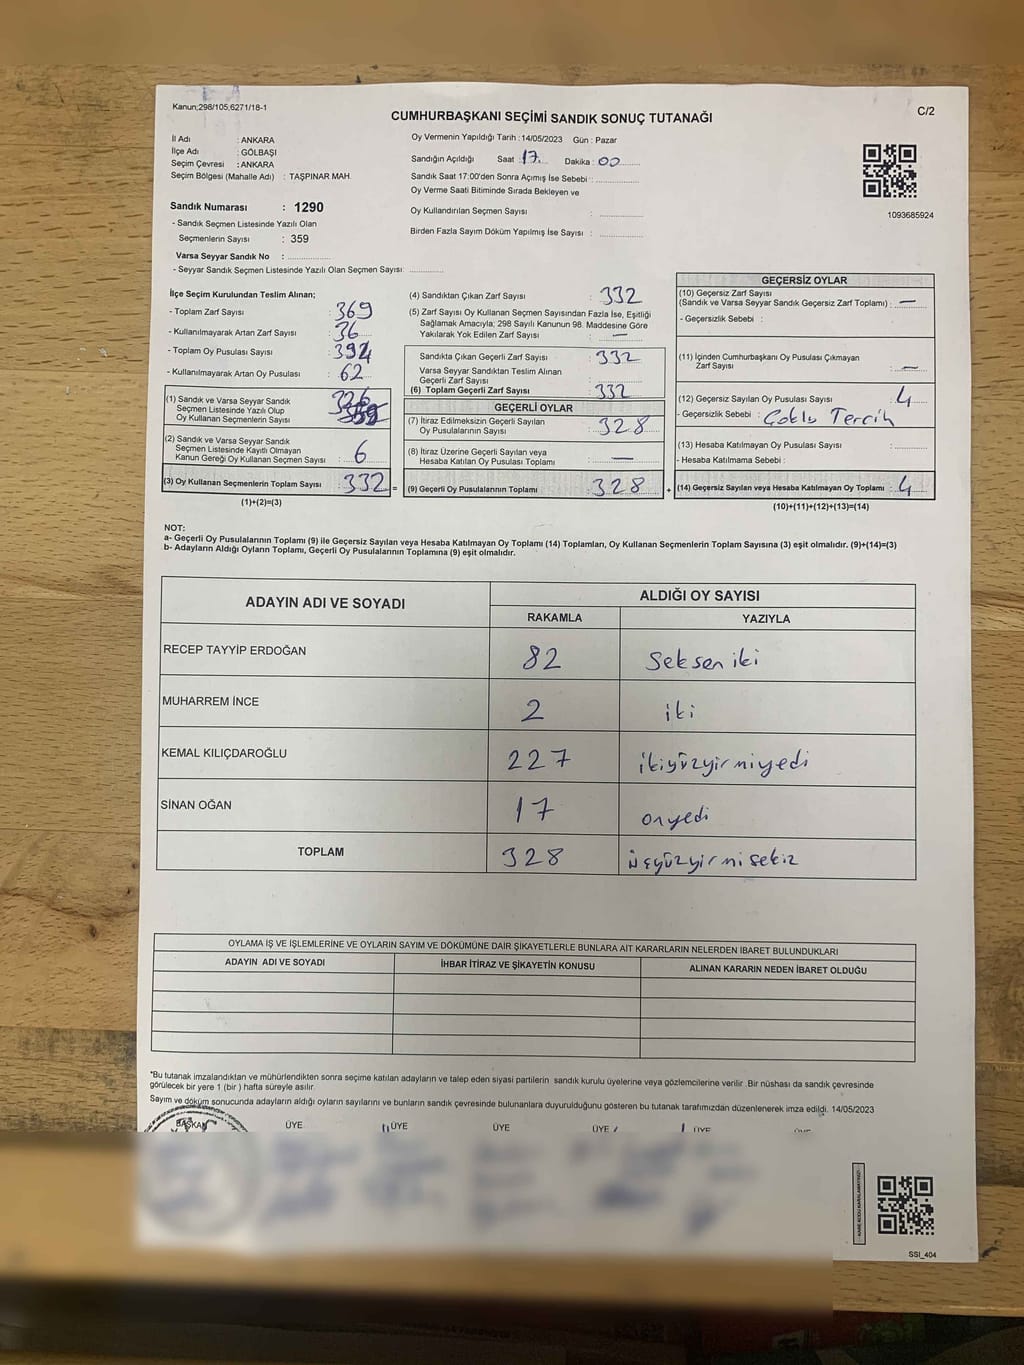 Kanun;298/105,6271/18-1
C/2
CUMHURBAŞKANI SEÇİMİ SANDIK SONUÇ TUTANAĞI
İl Adı : ANKARA
İlçe Adı : GÖLBAŞI
Seçim Çevresi : ANKARA
Seçim Bölgesi (Mahalle Adı) : TAŞPINAR MAH.
Oy Vermenin Yapıldığı Tarih : 14/05/2023 Gün : Pazar
Sandığın Açıldığı Saat : 17 Dakika : 00
Sandık Saat 17:00'den Sonra Açımış İse Sebebi :
Oy Verme Saati Bitiminde Sırada Bekleyen ve
Oy Kullandırılan Seçmen Sayısı :
Birden Fazla Sayım Döküm Yapılmış İse Sayısı :
1093685924
Sandık Numarası : 1290
- Sandık Seçmen Listesinde Yazılı Olan
Seçmenlerin Sayısı : 359
Varsa Seyyar Sandık No :
- Seyyar Sandık Seçmen Listesinde Yazılı Olan Seçmen Sayısı:
İlçe Seçim Kurulundan Teslim Alınan;
- Toplam Zarf Sayısı : 369
- Kullanılmayarak Artan Zarf Sayısı : 36
- Toplam Oy Pusulası Sayısı : 394
- Kullanılmayarak Artan Oy Pusulası : 62
(1) Sandık ve Varsa Seyyar Sandık
Seçmen Listesinde Yazılı Olup
Oy Kullanan Seçmenlerin Sayısı : 326
(2) Sandık ve Varsa Seyyar Sandık
Seçmen Listesinde Kayıtlı Olmayan
Kanun Gereği Oy Kullanan Seçmen Sayısı : 6
(3) Oy Kullanan Seçmenlerin Toplam Sayısı : 332 =
(1)+(2)=(3)
(4) Sandıktan Çıkan Zarf Sayısı : 332
(5) Zarf Sayısı Oy Kullanan Seçmen Sayısından Fazla İse, Eşitliği
Sağlamak Amacıyla; 298 Sayılı Kanunun 98. Maddesine Göre
Yakılarak Yok Edilen Zarf Sayısı : —
Sandıkta Çıkan Geçerli Zarf Sayısı : 332
Varsa Seyyar Sandıktan Teslim Alınan
Geçerli Zarf Sayısı :
(6) Toplam Geçerli Zarf Sayısı : 332
GEÇERLİ OYLAR
(7) İtiraz Edilmeksizin Geçerli Sayılan
Oy Pusulalarının Sayısı : 328
(8) İtiraz Üzerine Geçerli Sayılan veya
Hesaba Katılan Oy Pusulası Toplamı : —
(9) Geçerli Oy Pusulalarının Toplamı : 328 +
GEÇERSİZ OYLAR
(10) Geçersiz Zarf Sayısı
(Sandık ve Varsa Seyyar Sandık Geçersiz Zarf Toplamı) : —
- Geçersizlik Sebebi :
(11) İçinden Cumhurbaşkanı Oy Pusulası Çıkmayan
Zarf Sayısı : —
(12) Geçersiz Sayılan Oy Pusulası Sayısı : 4
- Geçersizlik Sebebi : Çoklu Tercih
(13) Hesaba Katılmayan Oy Pusulası Sayısı :
- Hesaba Katılmama Sebebi :
(14) Geçersiz Sayılan veya Hesaba Katılmayan Oy Toplamı : 4
(10)+(11)+(12)+(13)=(14)
NOT:
a- Geçerli Oy Pusulalarının Toplamı (9) ile Geçersiz Sayılan veya Hesaba Katılmayan Oy Toplamı (14) Toplamları, Oy Kullanan Seçmenlerin Toplam Sayısına (3) eşit olmalıdır. (9)+(14)=(3)
b- Adayların Aldığı Oyların Toplamı, Geçerli Oy Pusulalarının Toplamına (9) eşit olmalıdır.
ADAYIN ADI VE SOYADI
ALDIĞI OY SAYISI
RAKAMLA YAZIYLA
RECEP TAYYİP ERDOĞAN 82 Seksen iki
MUHARREM İNCE 2 iki
KEMAL KILIÇDAROĞLU 227 ikiyüzyirmiyedi
SİNAN OĞAN 17 onyedi
TOPLAM 328 üçyüzyirmi sekiz
OYLAMA İŞ VE İŞLEMLERİNE VE OYLARIN SAYIM VE DÖKÜMÜNE DAİR ŞİKAYETLERLE BUNLARA AİT KARARLARIN NELERDEN İBARET BULUNDUKLARI
ADAYIN ADI VE SOYADI İHBAR İTİRAZ VE ŞİKAYETİN KONUSU ALINAN KARARIN NEDEN İBARET OLDUĞU
*Bu tutanak imzalandıktan ve mühürlendikten sonra seçime katılan adayların ve talep eden siyasi partilerin sandık kurulu üyelerine veya gözlemcilerine verilir .Bir nüshası da sandık çevresinde
görülecek bir yere 1 (bir ) hafta süreyle asılır.
Sayım ve döküm sonucunda adayların aldığı oyların sayılarını ve bunların sandık çevresinde bulunanlara duyurulduğunu gösteren bu tutanak tarafımızdan düzenlenerek imza edildi. 14/05/2023
BAŞKAN ÜYE ÜYE ÜYE ÜYE ÜYE
SSI_404